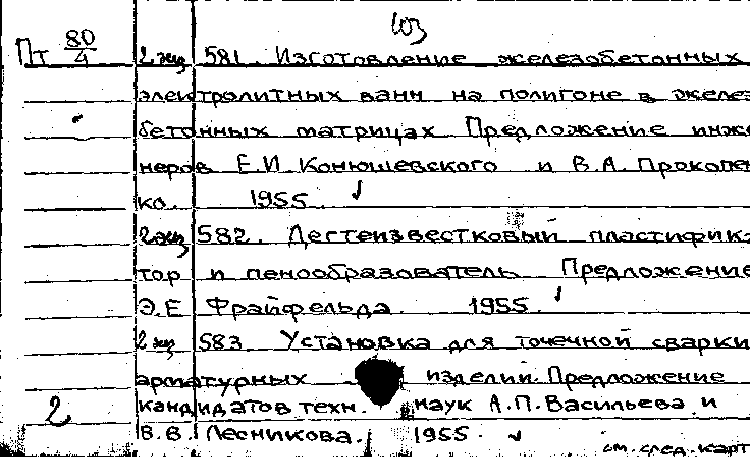 103
Пт 80/4 2 экз 581. Изготовление железобетонных
электролитных ванн на полигоне в желез
бетонных матрицах Предложение инже
неров Е.И. Конюшевского и В.А. Прокопен
ко. 1955.
2 экз 582. Дегтеизвестковый пластифика
тор и пенообразователь Предложение
Э.Е Фрайфельда. 1955.
2 экз 583 Установка для точечной сварки
арматурных изделий. Предложение
2 кандидатов техн. наук А.П. Васильева и
В.В. Лесникова. 1955.
см. след. карт